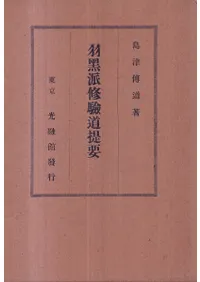 島津傳道著
羽黑派修驗道提要
東京 光融館發行